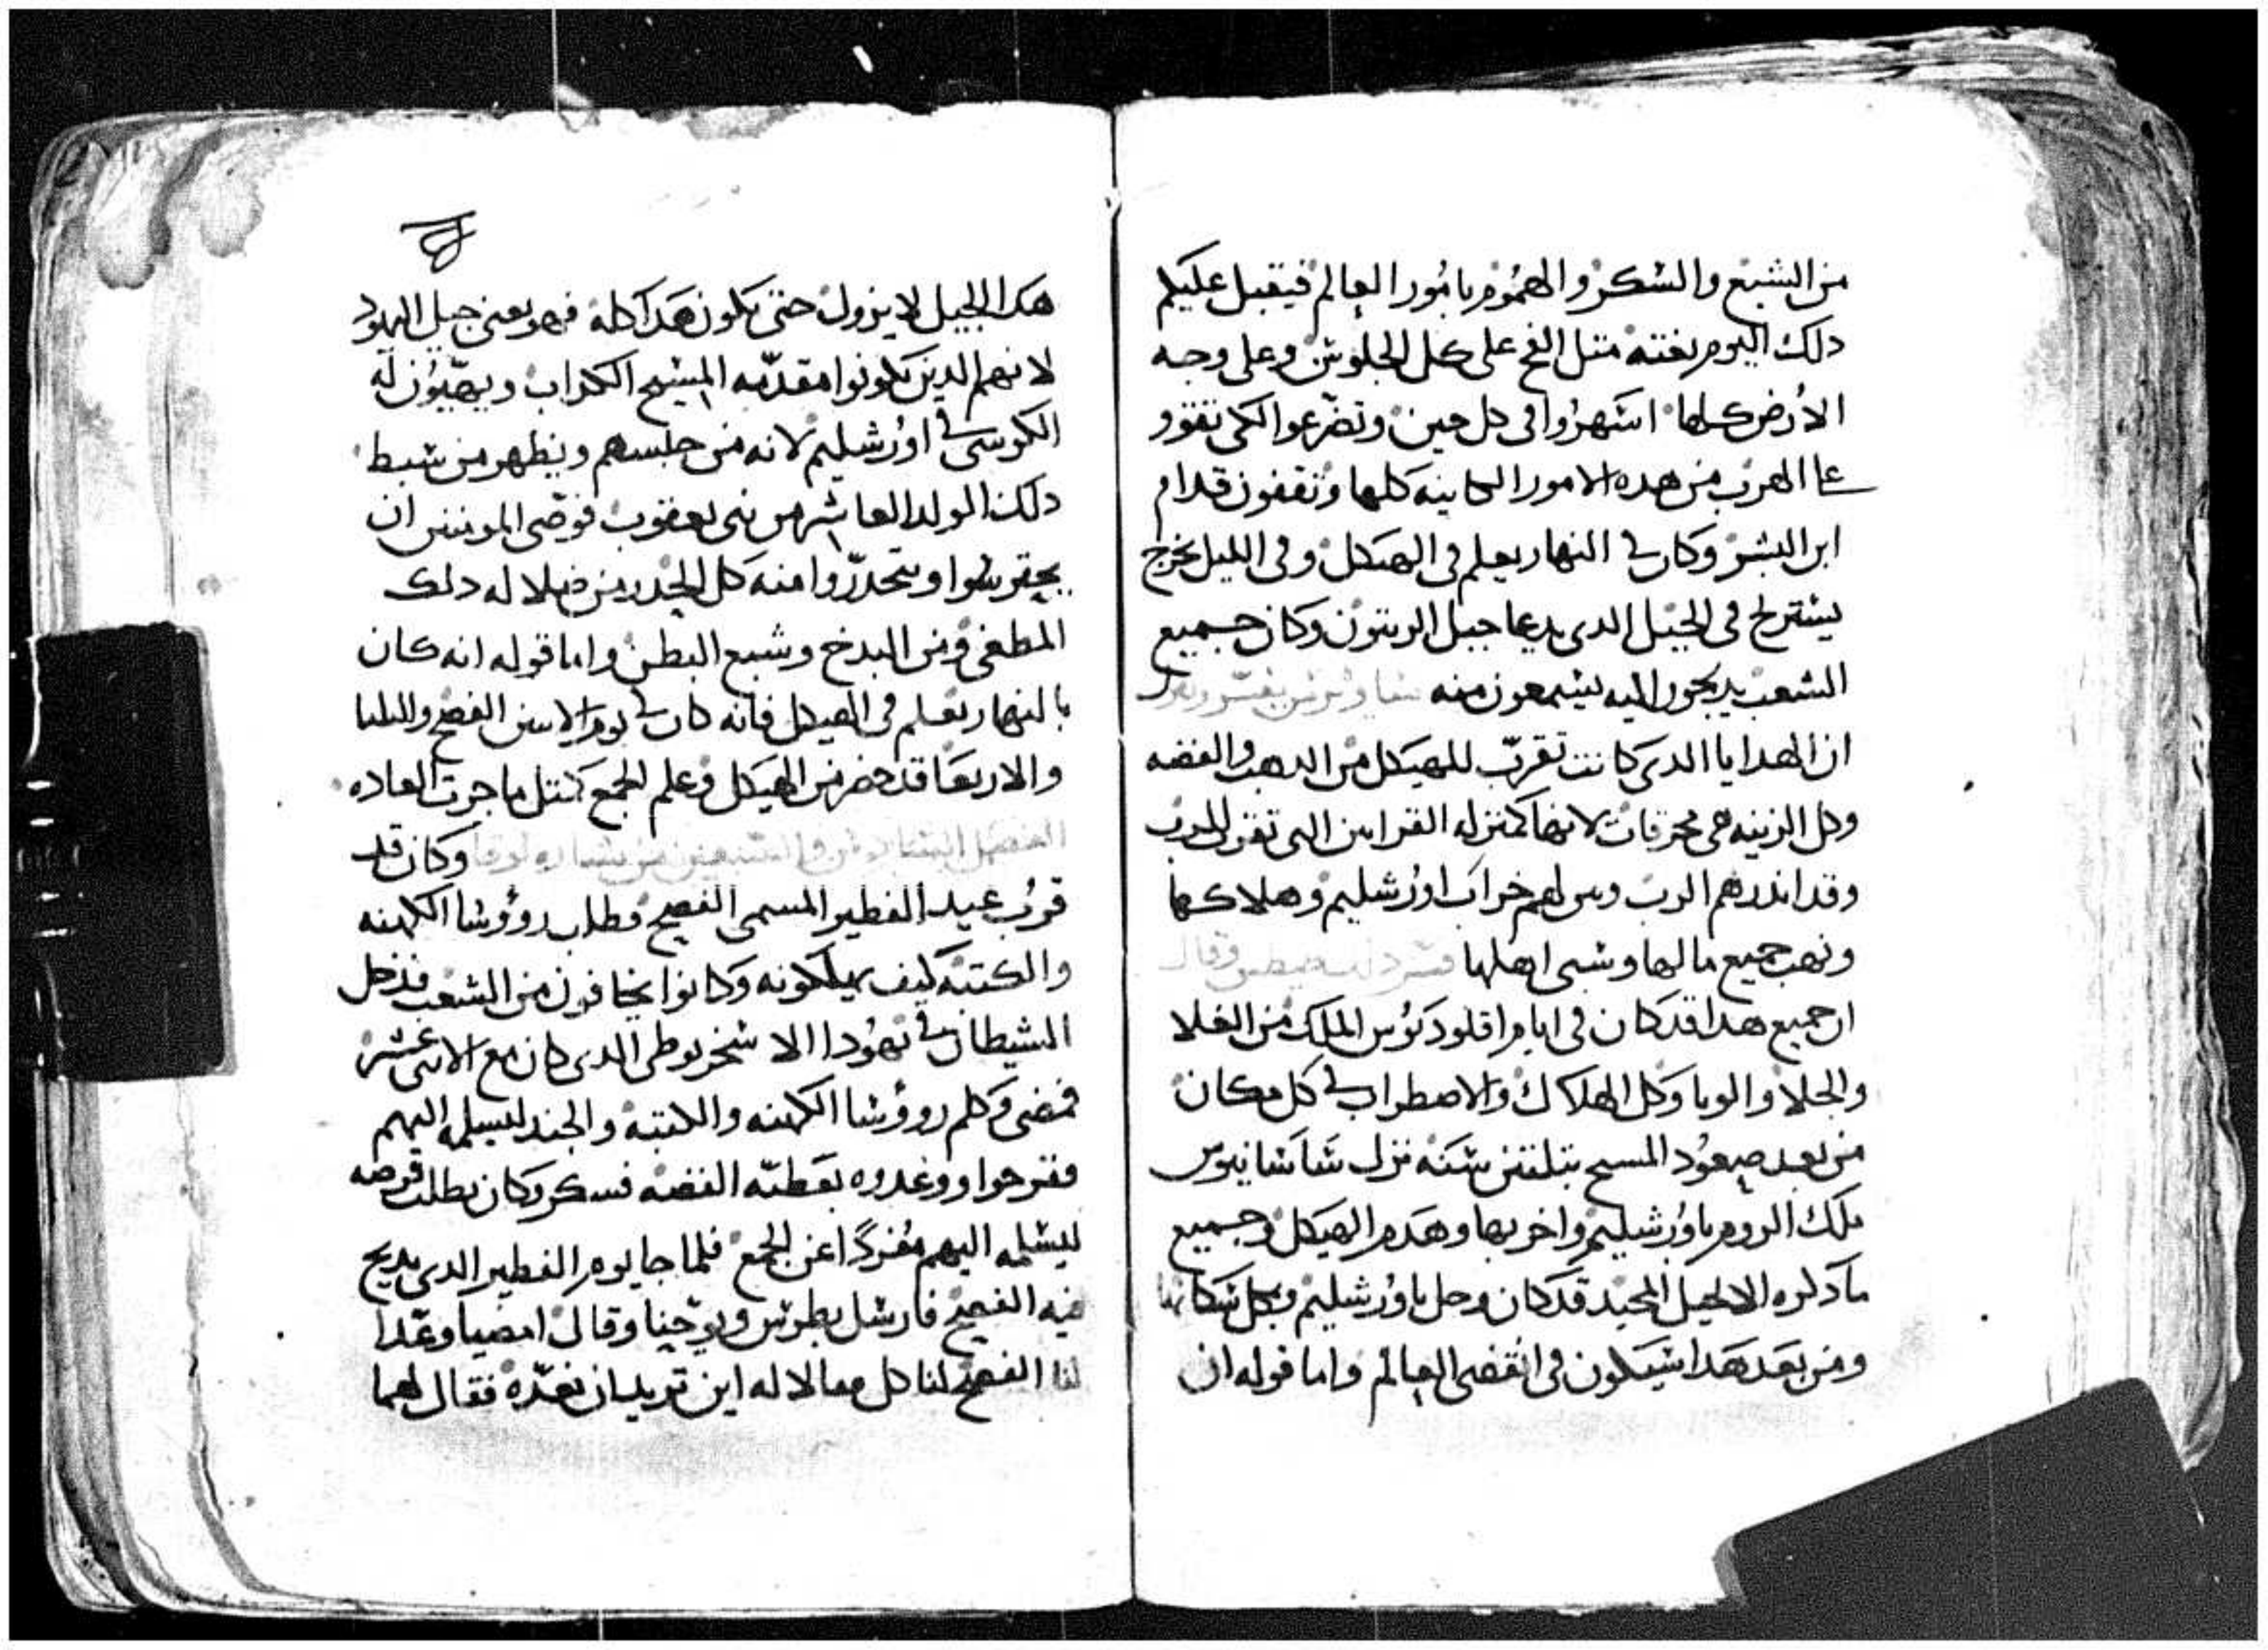 من الشبع والسكر والهموم بامور العالم فيقبل عليكم
دلك اليوم بغتة متل الفخ على كل الجلوس وعلى وجه
الارض كلها اسهروا في كل حين وتضرعوا لكي تقوو
علي الهرب من هده الامور الكاينه كلها وتقفون قدام
ابن البشر وكان في النهار يعلم في الهيكل وفي الليل يخرج
يستريح في الجبل الدى يدعا جبل الزيتون وكان جميع
الشعب يدلجون اليه ليسمعون منه
ان الهدايا الدى كانت تقرب للهيكل من الدهب والفضه
وكل الزينه هي محرقات لانها كمنزله القرابين التي تقرب للرب
وقد اندرهم الرب وبين لهم خراب اورشليم وهلاكها
ونهب جميع مالها وسبي اهلها وقال
ان جميع هدا قد كان في ايام اقلوديوس الملك من الغلا
والجلا والوبا وكل الهلاك والاضطراب في كل مكان
من بعد صعود المسيح بتلتين سنه نزل ساسانيوس
ملك الروم باورشليم واخربها وهدم الهيكل وجميع
ما دكره الانجيل المجيد قد كان وحل باورشليم وبكل سكانها
ومن بعد هدا سيكون في انقضى العالم واما قوله ان
هدا الجيل لا يزول حتى يكون هدا كله فهو يعني جيل اليهود
لانهم الدين يكونوا مقدمه المسيح الكداب ويهيون له
الكرسي في اورشليم لانه من جلسهم ويظهر من سبط
دلك الولد العاشر من بني يعقوب فوصى المومنين ان
يحترسوا ويتحدروا منه كل الحدر من ضلاله دلك
المطغي ومن البدخ وشبع البطن واما قوله انه كان
بالنهار يعلم في الهيكل فانه كان في يوم الاتنين الفصح والتلتا
والاربعا قد حضر من الهيكل وعلم الجمع كمتل ما جرت العاده
الفصل السادس والسبعين من بشاره لوقا وكان قد
قرب عيد الفطير المسمى الفصح فطلب روؤسا الكهنه
والكتبه كيف يهلكونه وكانوا يخافون من الشعب فدخل
الشيطان في يهودا الاسخريوطي الدى كان مع الاتني عشر
فمضى وكلم روؤسا الكهنه والكتبه والجند ليسلمه اليهم
ففرحوا ووعدوه بعطيه الفضه فشكر وكان يطلب فرصه
ليسلمه اليهم مفردا عن الجمع فلما جا يوم الفطير الدى يدبح
فيه الفصح فارسل بطرس ويوحنا وقال امضيا وعدا
لنا الفصح لناكل معا قالا له اين تريد ان نعده فقال لهما